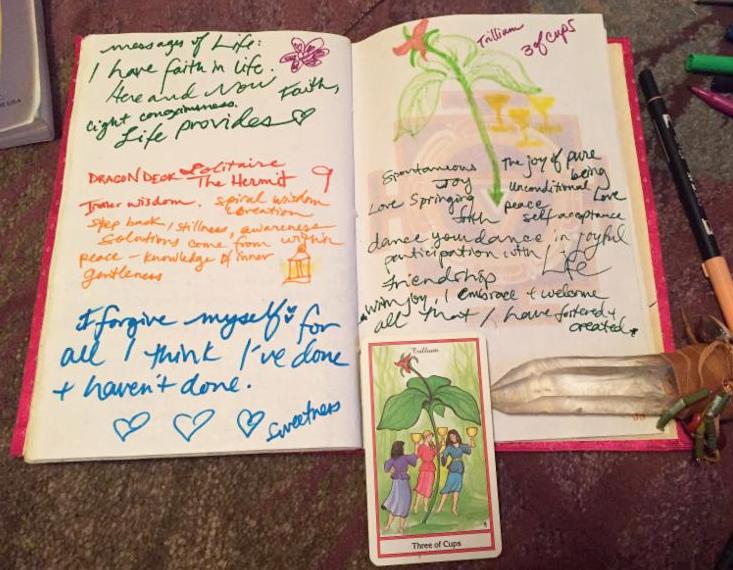 messages of Life:
I have faith in life.
Here and Now
Faith,
light consciousness.
Life provides
DRAGON DECK Solitaire
The Hermit 9
Inner wisdom. spiral wisdom
creation
step back / stillness, awareness
Solutions come from within
peace - knowledge of inner
gentleness
I forgive myself for
all I think I've done
+ haven't done.
Sweetness
Trillium
3 of cups
Spontaneous
Joy
Love Springing
forth
The joy of pure
being
Unconditional
Love
peace
self acceptance
dance your dance in joyful
participation with Life
friendship
with joy, I embrace + welcome
all that I have fostered +
created.
Trillium
Three of Cups